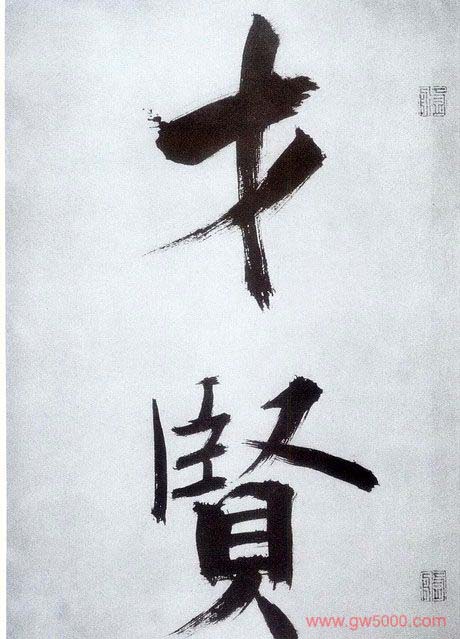 才
賢
www.gw5000.com